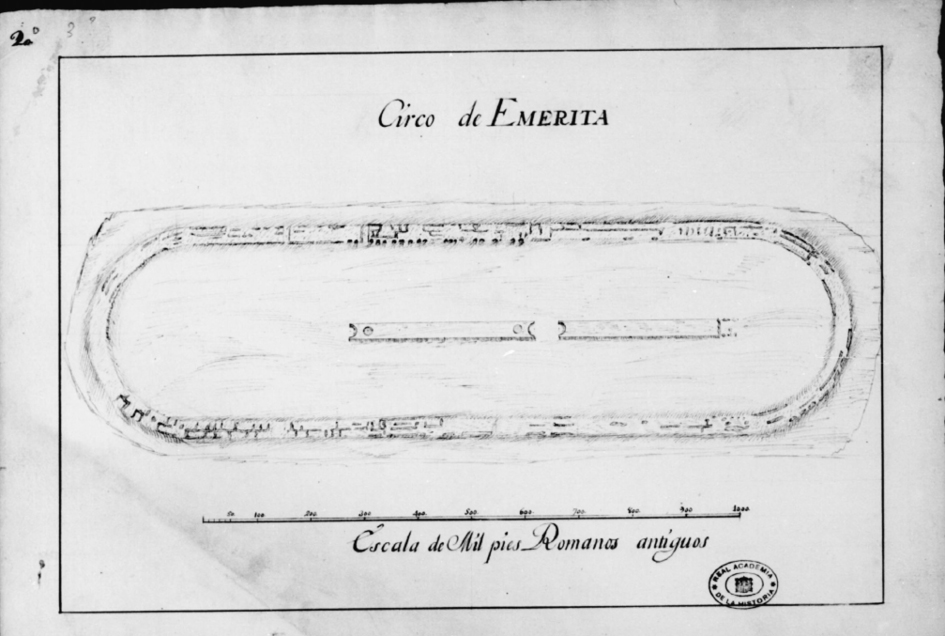 2º 3º
Circo de EMERITA
50 100 200 300 400 500 600 700 800 900 1000
Escala de Mil pies Romanos antiguos
REAL ACADEMIA
DE LA HISTORIA